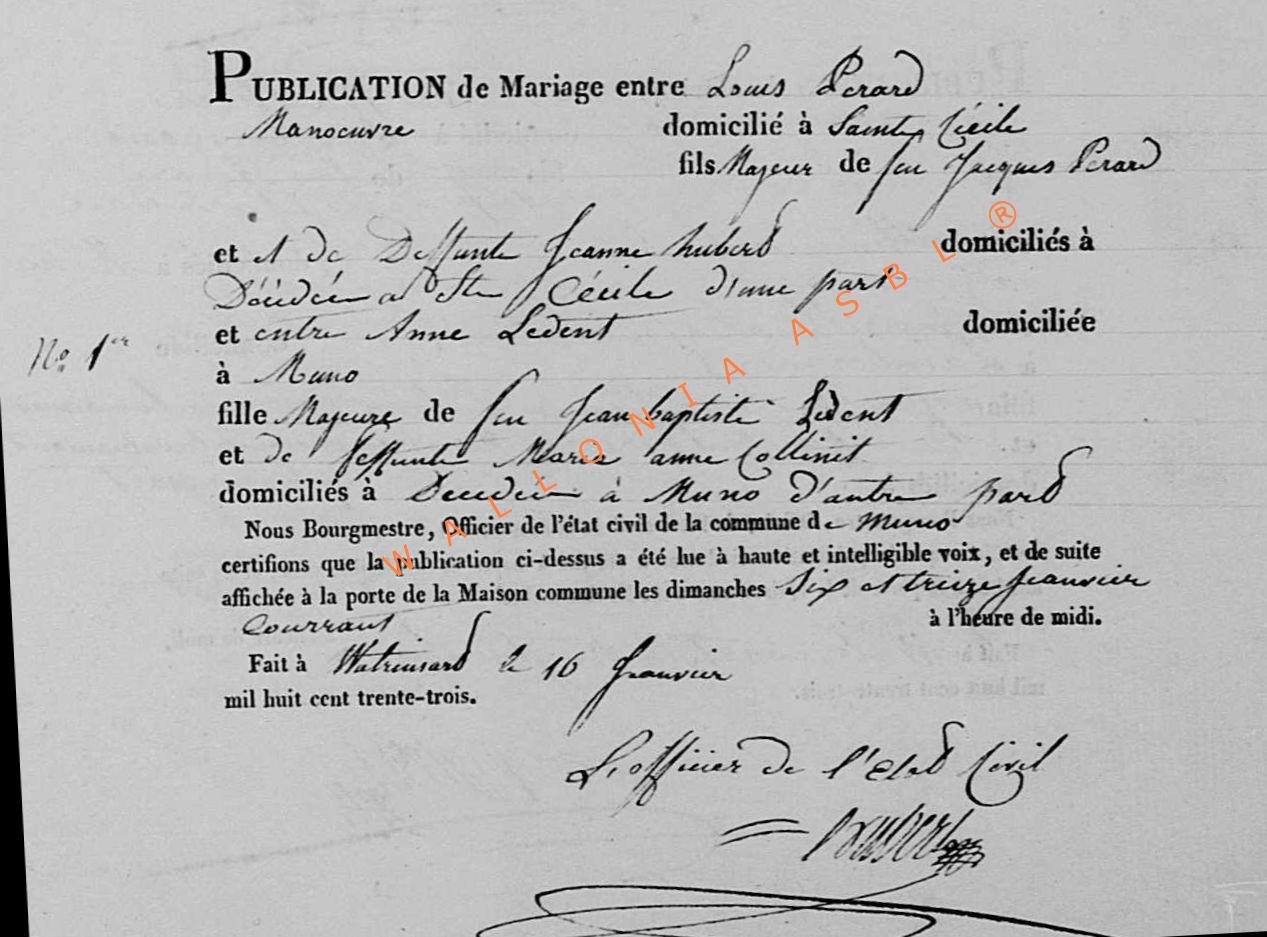 PUBLICATION de Mariage entre Louis Perard
Manoeuvre domicilié à Sainte Cécile
fils Majeur de feu Jacques Perard
et de Deffunte Jeanne hubert domiciliés à
Décédés a Ste Cécile d'une part
et entre Anne Ledent domiciliée
N° 1er
à Muno
fille Majeure de feu Jean baptiste Ledent
et de feffunte Marie anne Collinet
domiciliés à Decedés à Muno d'autre pard
Nous Bourgmestre, Officier de l'état civil de la commune de Muno
certifions que la publication ci-dessus a été lue à haute et intelligible voix, et de suite
affichée à la porte de la Maison commune les dimanches Six et treize Jeanvier
Courrant à l'heure de midi.
Fait à Watrinsard le 16 Jeanvier
mil huit cent trente-trois.
L'officier de l'Etad Civil
WALLONIA ASBL ®